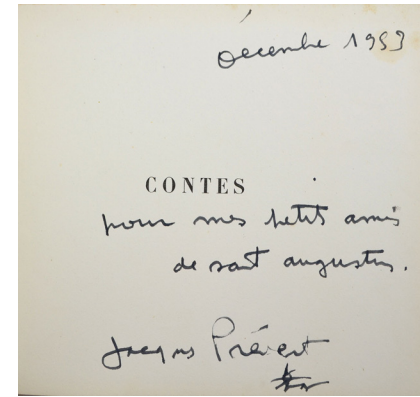 décembre 1953
CONTES
pour mes petits amis
de saint augustin.
Jacques Prévert